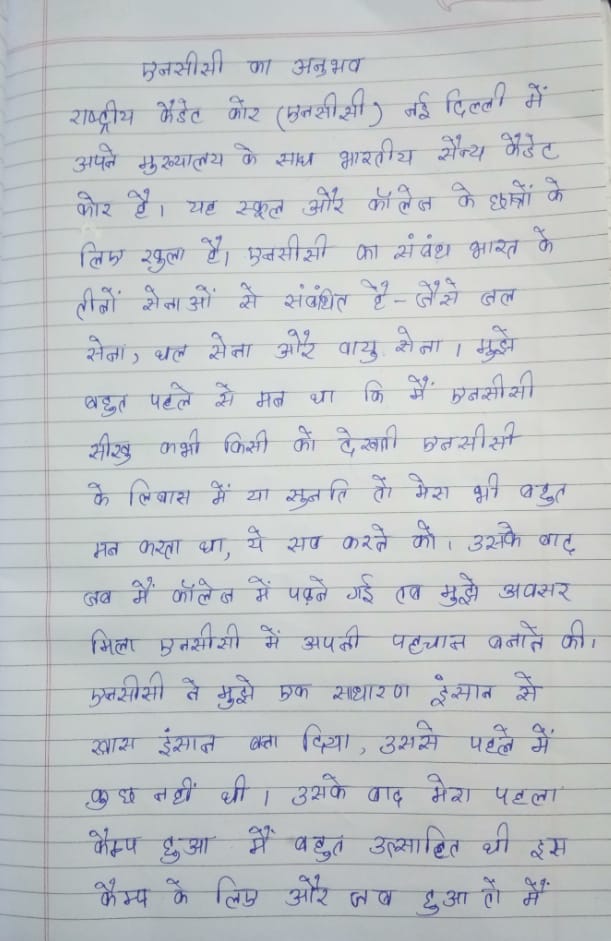 एनसीसी का अनुभव
राष्ट्रीय कैडेट कोर (एनसीसी) नई दिल्ली में
अपने मुख्यालय के साथ भारतीय सैन्य कैडेट
कोर है। यह स्कूल और कॉलेज के छात्रों के
लिए खुला है। एनसीसी का संबंध भारत के
तीनों सेनाओं से संबंधित है - जैसे जल
सेना, थल सेना और वायु सेना । मुझे
बहुत पहले से मन था कि मैं एनसीसी
सीखु कभी किसी को देखती एनसीसी
के लिबास में या सुनति तो मेरा भी बहुत
मन करता था, ये सब करने को। उसके बाद
जब मैं कॉलेज में पढ़ने गई तब मुझे अवसर
मिला एनसीसी में अपनी पहचान बनाने की।
एनसीसी ने मुझे एक साधारण इंसान से
खास इंसान बना दिया, उससे पहले में
कुछ नहीं थी । उसके बाद मेरा पहला
कैम्प हुआ मैं बहुत उत्साहित थी इस
कैम्प के लिए और जब हुआ तो मैं